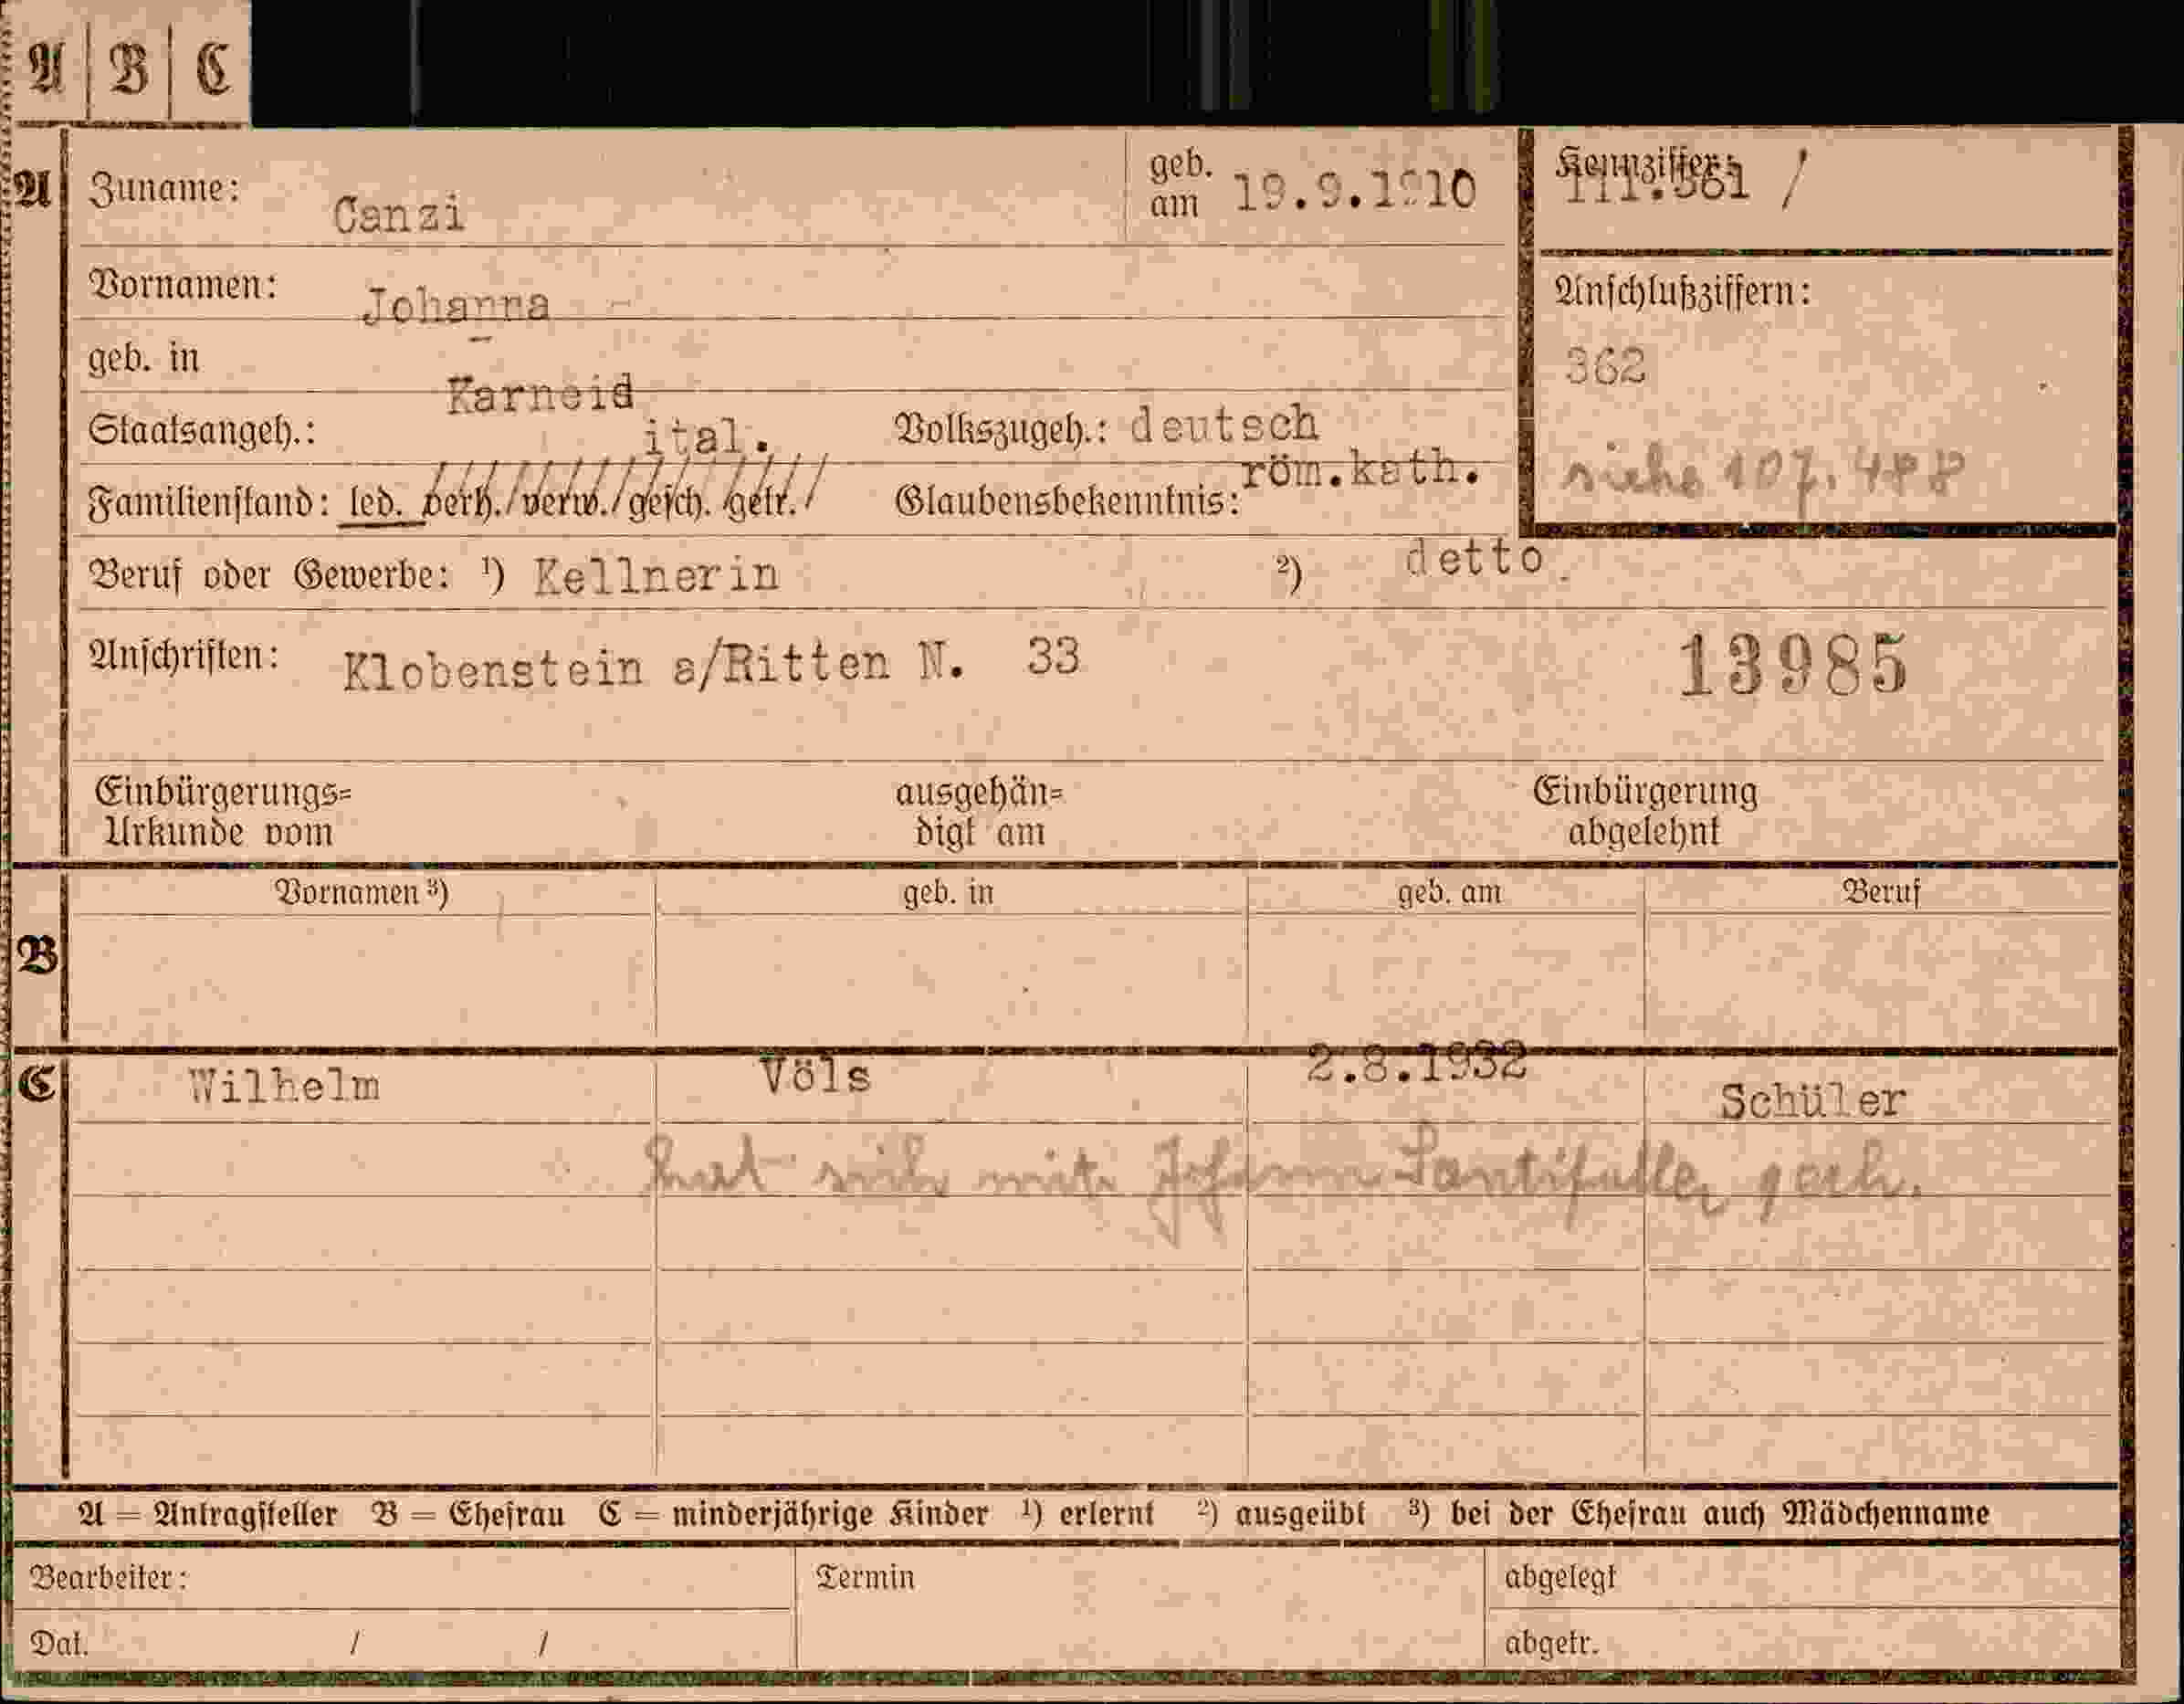 A B C
A Zuname: Canzi geb. am 19.9.1910 Kennziffer: 111.361 /
Vornamen: Johanna - Anschlußziffern:
geb. in Karneid 362
Staatsangeh.: ital. Volkszugeh.: deutsch
Familienstand: led. verh./verw./gesch. getr./ Glaubensbekenntnis: röm.kath. siehe 107.488
Beruf oder Gewerbe: ¹) Kellnerin ²) detto.
Anschriften: Klobenstein a/Ritten N. 33 13985
Einbürgerungs= ausgehän= Einbürgerung
Urkunde vom digt am abgelehnt
Vornamen ³) geb. in geb. am Beruf
B
C Wilhelm Völs 2.8.1932 Schüler
hat sich mit Johann Santifaller
A = Antragsteller B = Ehefrau C = minderjährige Kinder ¹) erlernt ²) ausgeübt ³) bei der Ehefrau auch Mädchenname
Bearbeiter: Termin abgelegt
Dat. / / abgetr.